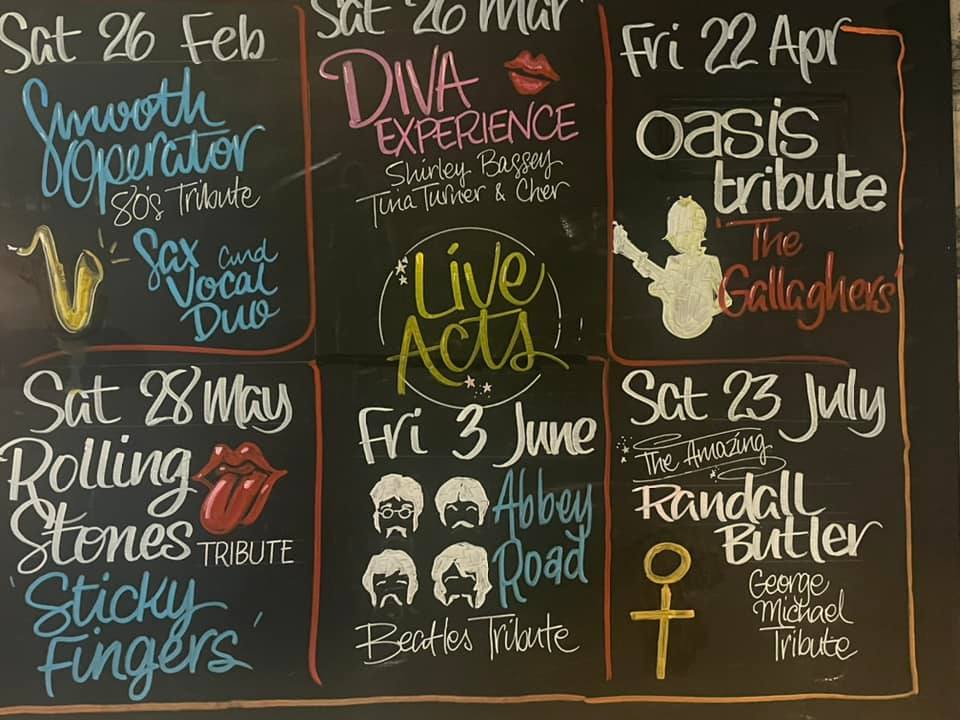 Sat 26 Feb
Smooth
Operator
80's Tribute
Sax and
Vocal
Duo
Sat 26 Mar
DIVA
EXPERIENCE
Shirley Bassey
Tina Turner & Cher
Fri 22 Apr
oasis
tribute
'The
Gallaghers'
Live
Acts
Sat 28 May
Rolling
Stones TRIBUTE
'Sticky
Fingers'
Fri 3 June
Abbey
Road
Beatles Tribute
Sat 23 July
The Amazing
Randall
Butler
George
Michael
Tribute